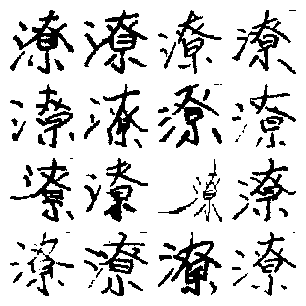 潦潦潦潦
潦潦潦潦
潦潦潦潦
潦潦潦潦